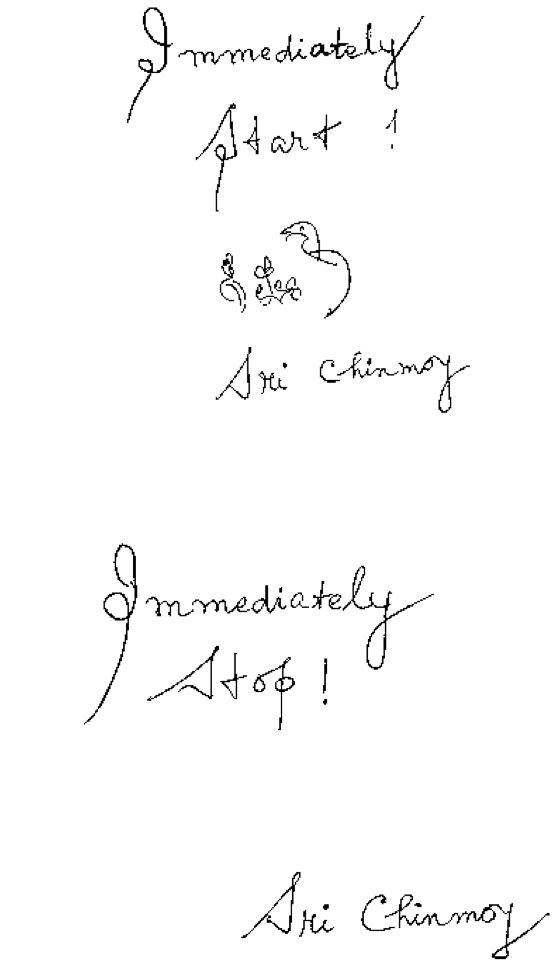 Immediately
Start !
Sri Chinmoy
Immediately
Stop !
Sri Chinmoy